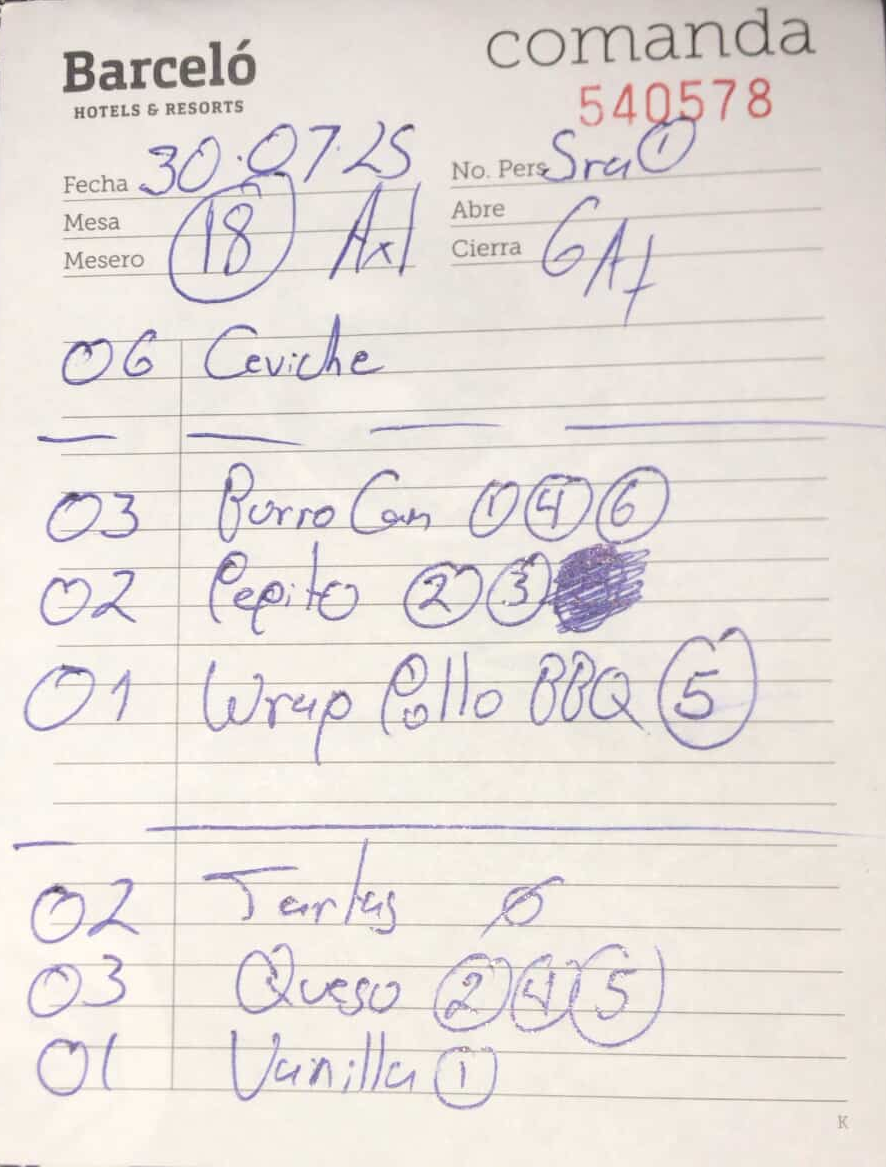 Barceló
HOTELS & RESORTS
comanda
540578
Fecha 30.07.25
No. Pers Sra 1
Mesa 18 Axl
Abre
Mesero
Cierra
06 Ceviche
03 Burro Cam 1 4 6
02 Pepito 2 3
01 Wrap Pollo BBQ 5
02 Tartas
03 Queso 2 4 5
01 Vanilla 1
K